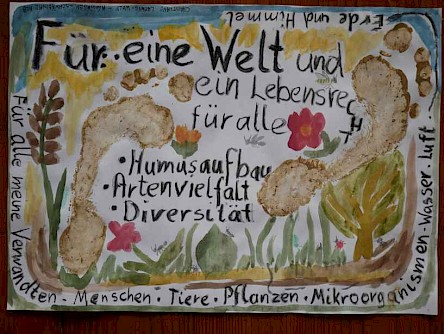 Für eine Welt und
ein Lebensrecht
für alle
• Humusaufbau
• Artenvielfalt
• Diversität
Für alle meine Verwandten - Menschen • Tiere • Pflanzen • Mikroorganismen - Wasser • Luft •
Erde und Himmel